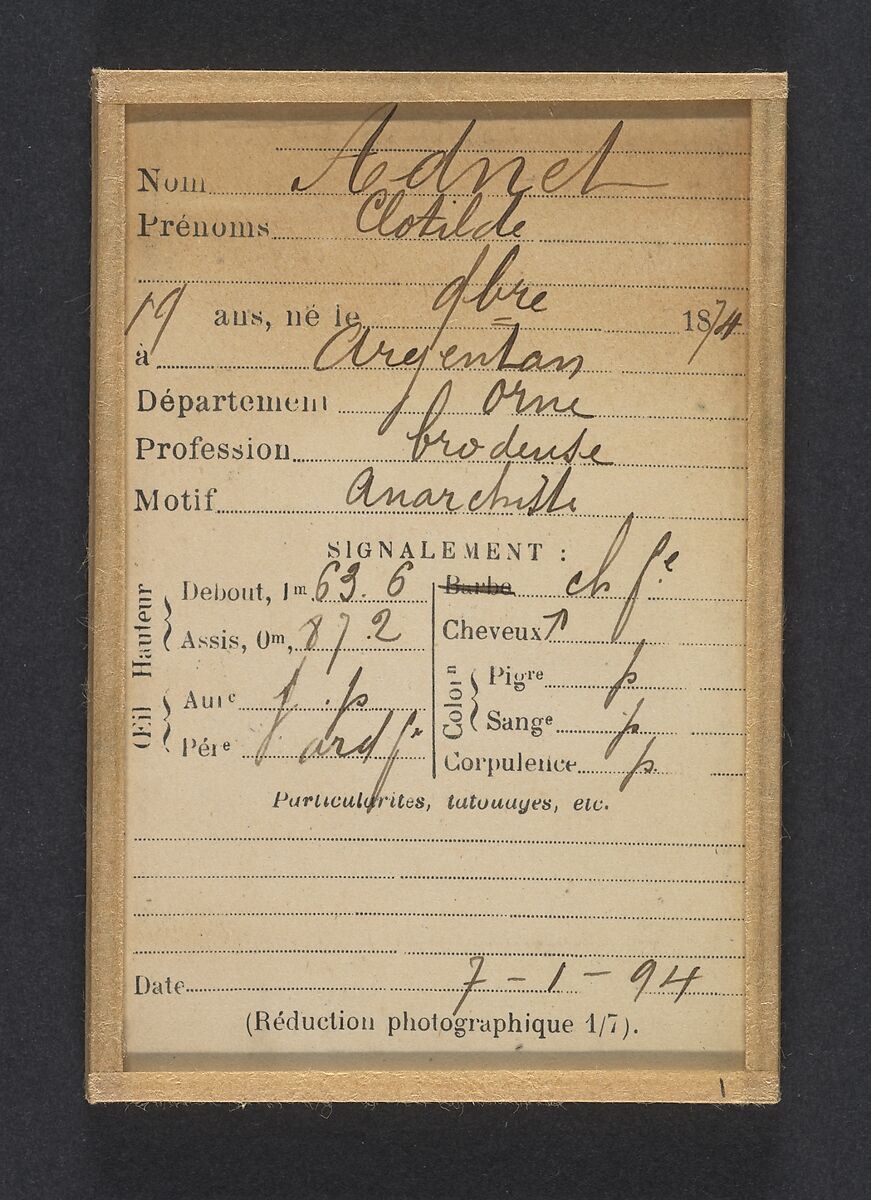 Nom Adnet
Prénoms Clotilde
19 ans, né le 9bre 1874
à Argentan
Département Orne
Profession brodeuse
Motif Anarchiste
SIGNALEMENT :
Hauteur
Debout, 1m 63.6
Assis, 0m, 87.2
Œil
Aure j. p
Pére j. ard fe
Barbe ch fe
Cheveux
Colorn
Pigre p
Sange p
Corpulence p.
Particularités, tatouages, etc.
Date 7-1-94
(Réduction photographique 1/7).
1